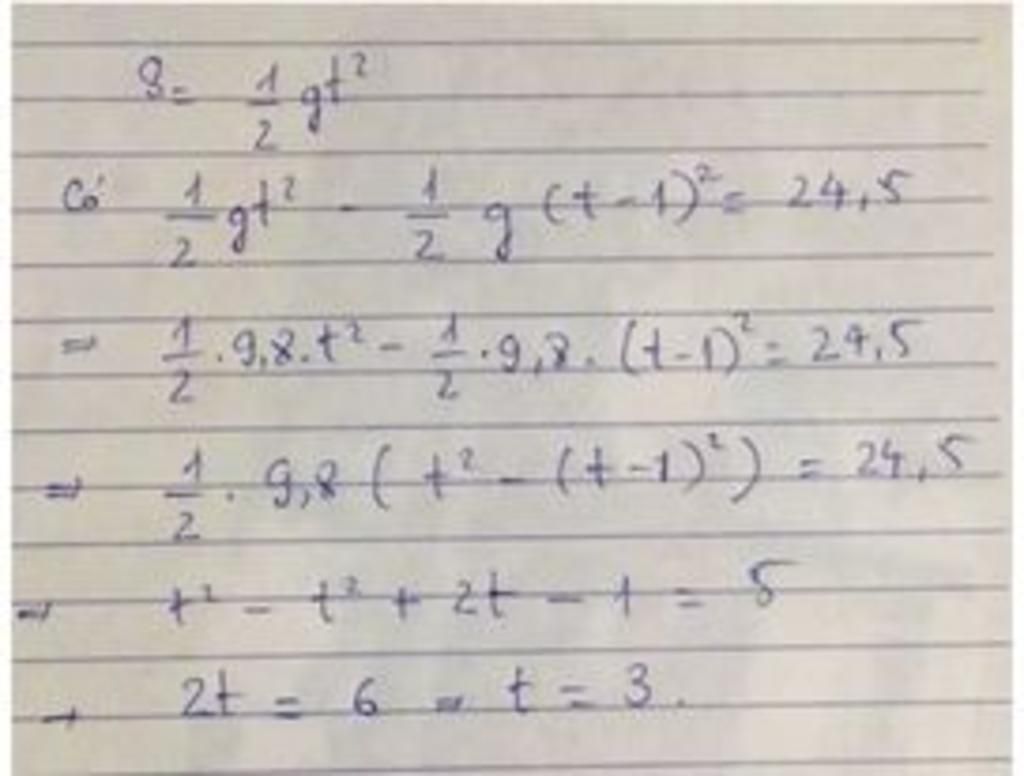 S = 1/2 gt²
Có 1/2 gt² - 1/2 g (t-1)² = 24,5
⇒ 1/2 . 9,8 . t² - 1/2 . 9,8 . (t-1)² = 24,5
⇒ 1/2 . 9,8 ( t² - (t-1)² ) = 24,5
⇒ t² - t² + 2t - 1 = 5
→ 2t = 6 ⇒ t = 3.